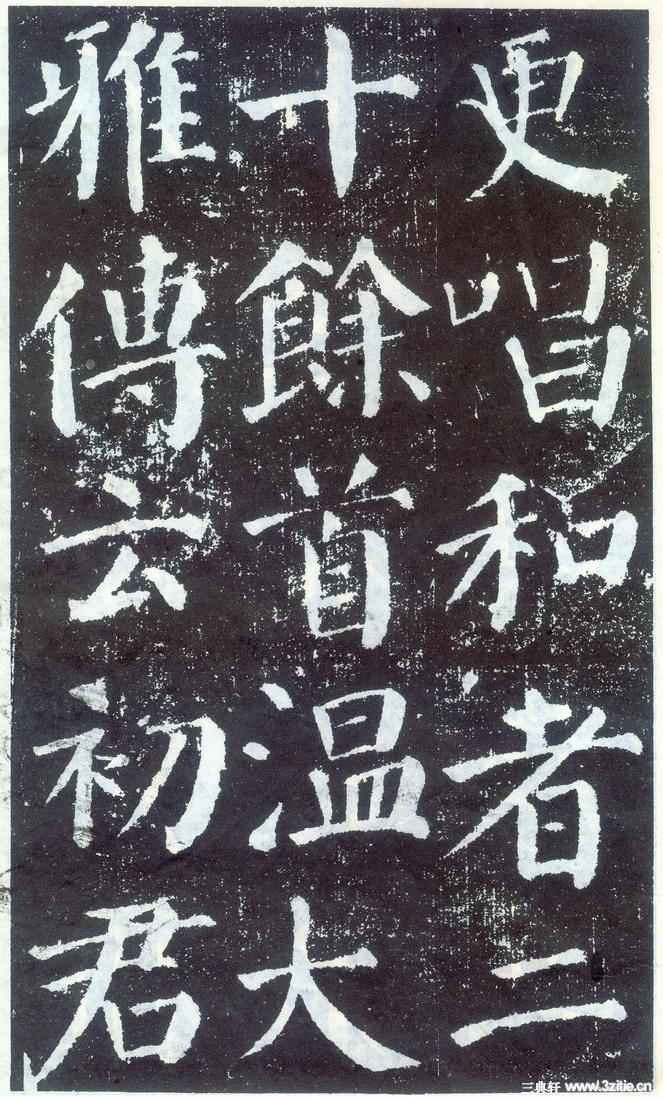 更唱和者二
十餘首溫大
雅傳云初君
三典轩 www.3zitie.cn